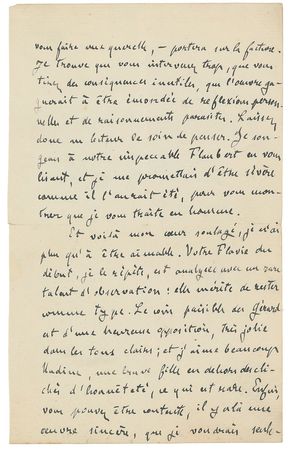 vous faire une querelle, — portera sur la facture.
Je trouve que vous intervenez trop, que vous
tirez des conséquences inutiles, que l'œuvre ga-
gnerait à être émondée de réflexions person-
nelles et de raisonnements parasites. Laissez
donc au lecteur le soin de penser. Je son-
geais à notre impeccable Flaubert en vous
lisant, et je me promettais d'être sévère
comme il l'aurait été, pour vous mon-
trer que je vous traite en homme.
Et voilà mon cœur soulagé, je n'ai
plus qu'à être aimable. Votre Flavie du
début, je le répète, est analysée avec un rare
talent d'observation : elle mérite de rester
comme type. Le coin paisible des Gérard
est d'une heureuse opposition, très jolie
dans les tons clairs ; et j'aime beaucoup
Nadine, une brave fille en dehors des cli-
chés d'honnêteté, ce qui est rare. Enfin,
vous pouvez être contente, il y a là une
œuvre sincère, que je voudrais seule-